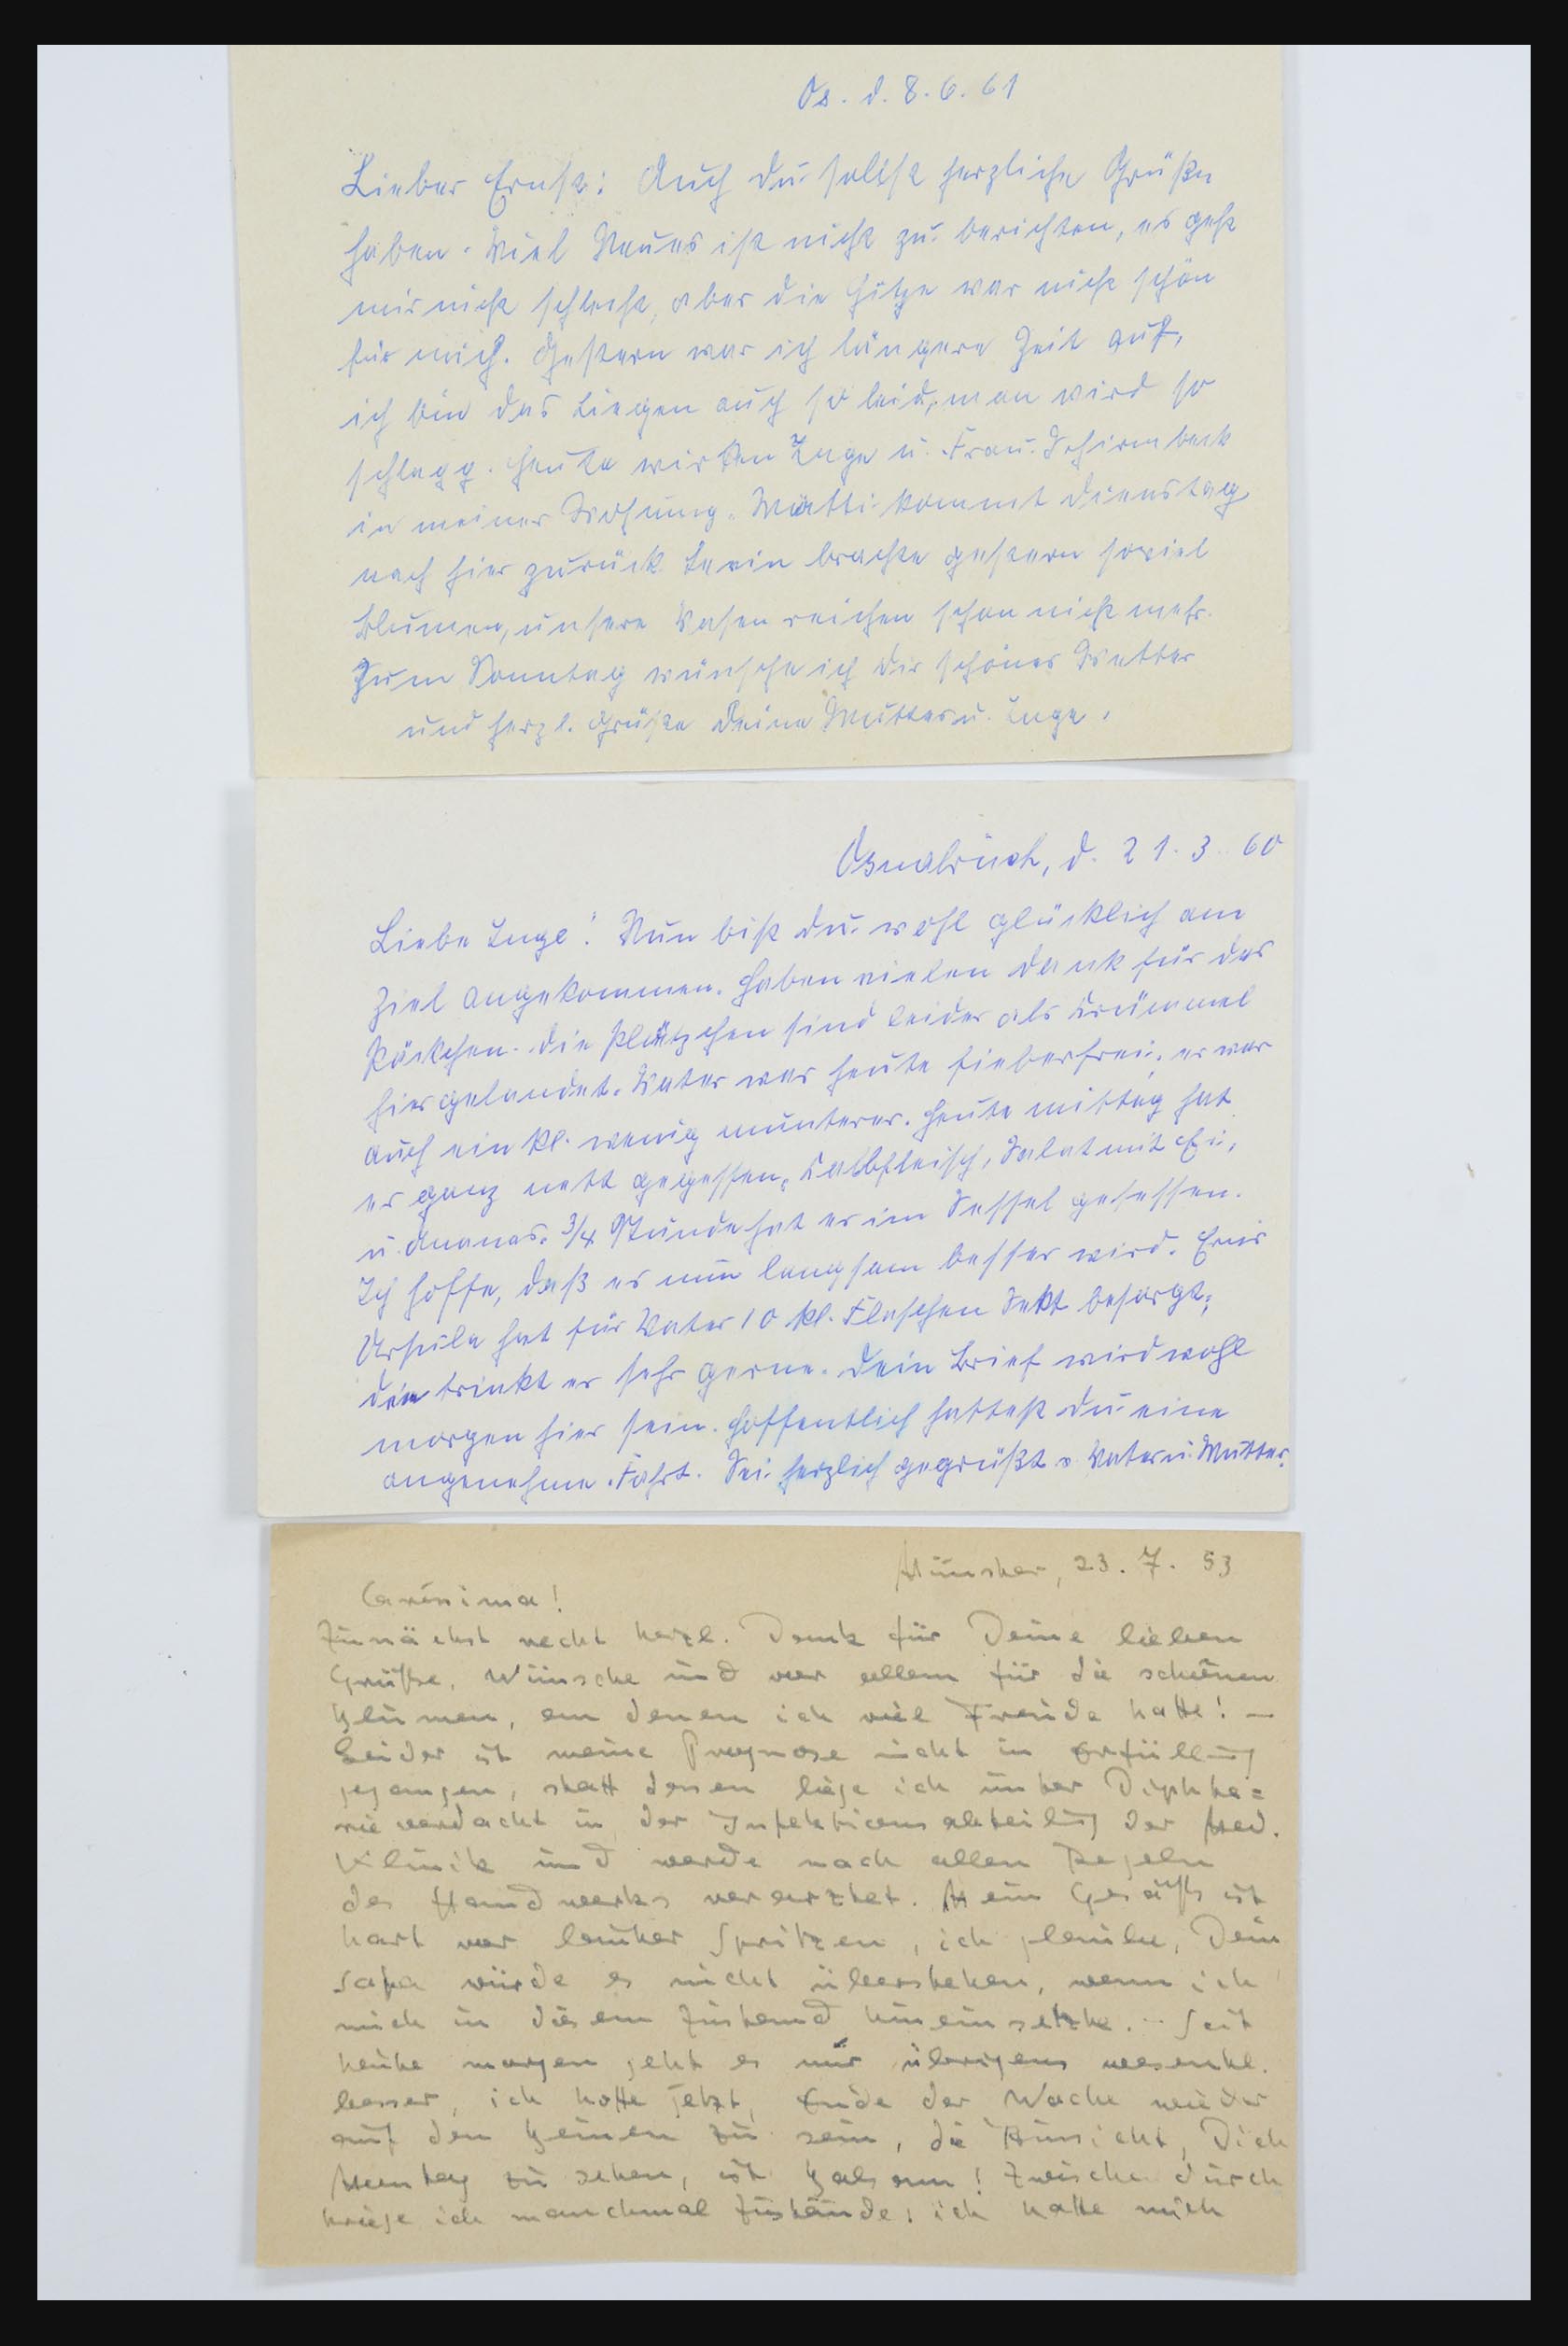 Os. d. 8.6.61
Lieber Ernst! Auch du sollst herzliche Grüße
haben. Viel Neues ist nicht zu berichten, es geht
mir nicht schlecht, aber die Hitze war nicht schön
für mich. Gestern war ich längere Zeit auf,
ich bin das Liegen auch so leid, man wird so
schlapp. Heute wirken Inge u. Frau Schirmbeck
in meiner Wohnung. Mutti kommt Dienstag
nach hier zurück. brachte gestern soviel
Blumen, unsere Vasen reichen schon nicht mehr.
Zum Sonntag wünsche ich dir schönes Wetter
und herzl. Grüße deine Mutter u. Inge.
Osnabrück, d. 21.3.60
Liebe Inge! Nun bist du wohl glücklich am
Ziel angekommen. Haben vielen Dank für das
Päckchen. Die Plätzchen sind leider als Krümmel
hier gelandet. Vater war heute fieberfrei, er war
auch ein kl. wenig munterer. Heute mittag hat
er ganz nett gegessen, Kalbfleisch, Salat mit Ei,
u. Ananas. 3/4 Stunde hat er im Sessel gesessen.
Ich hoffe, daß es nun langsam besser wird.
Ursula hat für Vater 10 kl. Flaschen Sekt besorgt,
den trinkt er sehr gerne. Dein Brief wird wohl
morgen hier sein. Hoffentlich hattest du eine
angenehme Fahrt. Sei herzlich gegrüßt v. Vater u. Mutter.
Münster, 23.7.53
Carissima!
Zunächst recht herzl. Dank für Deine lieben
Grüße, Wünsche und vor allem für die schönen
Blumen, an denen ich viel Freude hatte! —
Leider ist meine Prognose nicht in Erfüllung
gegangen, statt dessen liege ich unter Diphthe=
rieverdacht in der Infektionsabteilung der Med.
Klinik und werde nach allen Regeln
des Handwerks verarztet. Mein Gesäß ist
hart vor lauter Spritzen, ich glaube, Dein
Sofa würde es nicht überstehen, wenn ich
mich in diesem Zustand hineinsetzte. – Seit
heute morgen geht es mir übrigens wesentl.
besser, ich hoffe jetzt, Ende der Woche wieder
auf den Beinen zu sein, die Aussicht, Dich
Montag zu sehen, ist Balsam! Zwischendurch
kriege ich manchmal Zustände: ich hatte mich